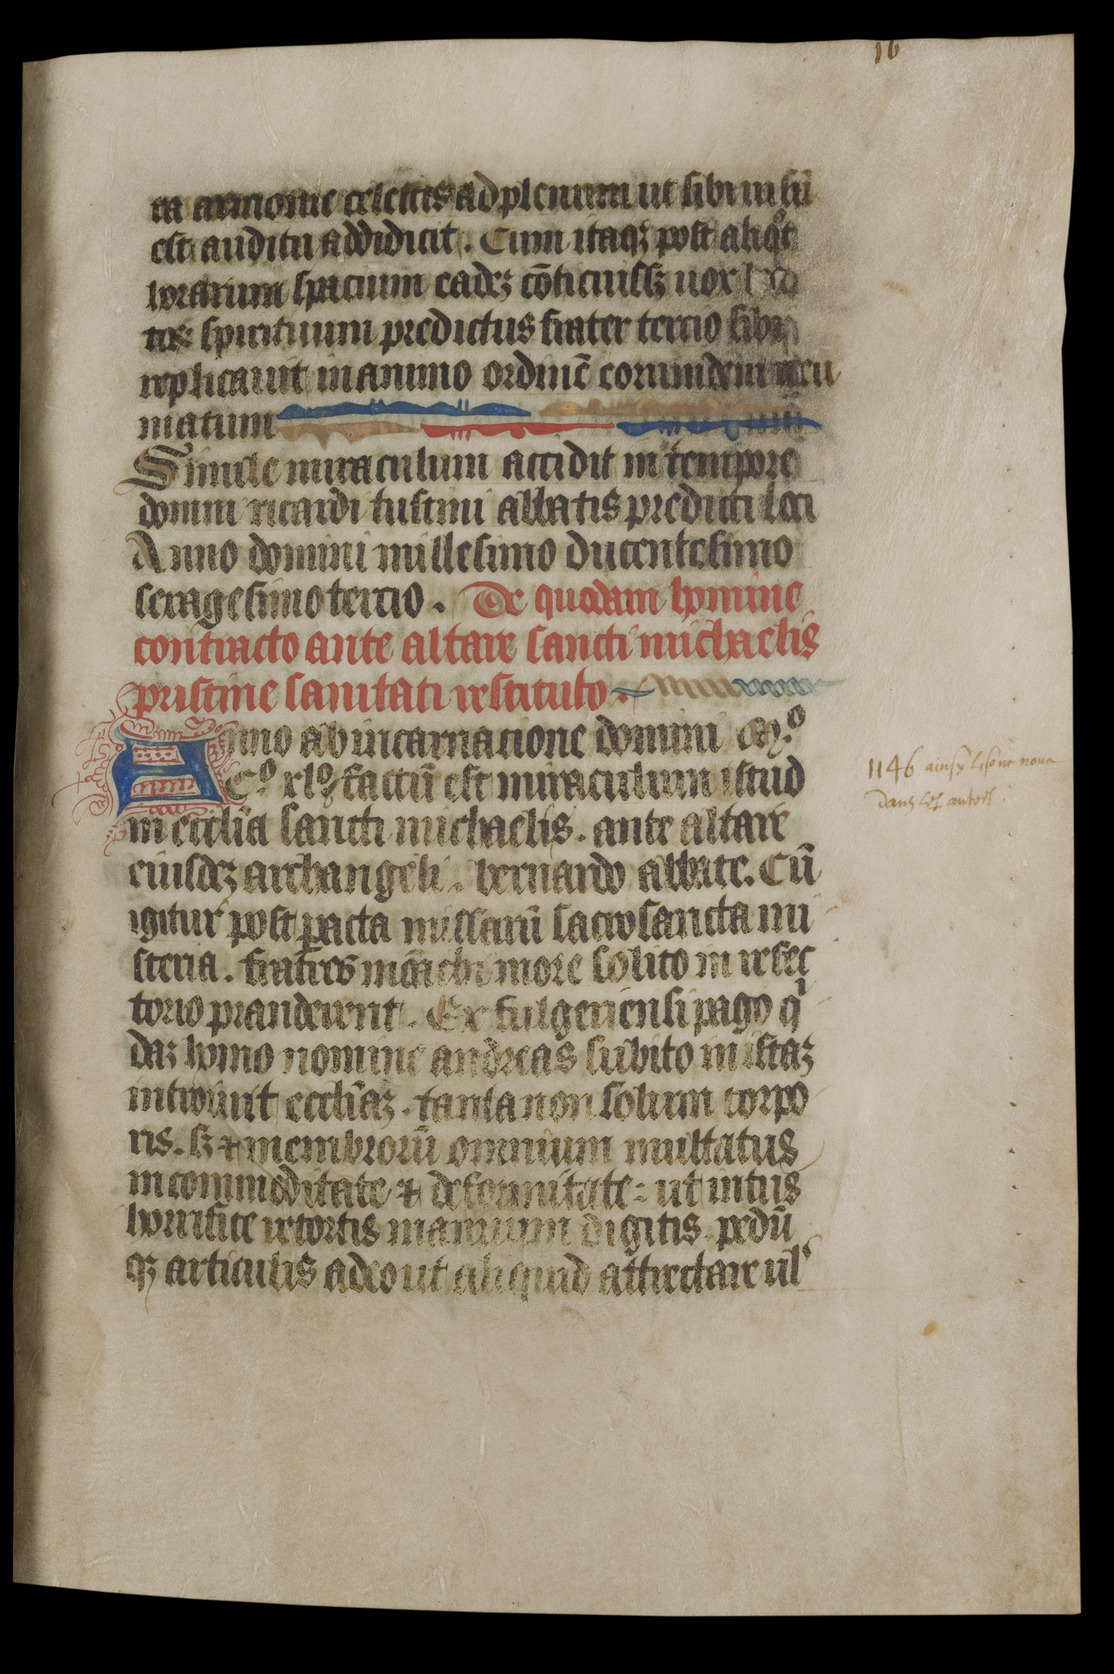 16
ea armonie celestis ad plenum ut sibi uisū
est auditu addidicit. Cum itaqꝫ post aliqͦt
horarum spacium eadeꝫ cōticuissꝫ uox
spirituum predictus frater tercio sibi
replicauit in animo ordinē eorumdem neu
matum
Simile miraculum accidit in tempore
domni ricardi tustini abbatis predicti loci
Anno domini millesimo ducentesimo
sexagesimo tercio. De quodam homine
contracto ante altare sancti michaelis
pristine sanitati restituto.
Anno ab incarnacione domini Mͦ.
Cͦ xlͦ factū est miraculum istud
in eccľia sancti michaelis. ante altare
eiusdeꝫ archangeli. bernardo abbate. Cū
igitur post ꝑacta missarū sacrosancta mi
steria. fratres mōachi more solito in refec
torio pranderent. Ex fulgeriensi pago qⁱ
daꝫ homo nomine andreas subito in istaꝫ
introiuit eccľiaꝫ. tanta non solum corpo
ris. sꝫ ⁊ membrorū omnium multatus
incommoditate ⁊ deformitate: ut intus
horrifice retortis manuum digitis. pedū
qꝫ articulis adeo ut aliquid attrectare ul'
1146 ainsy
dans les